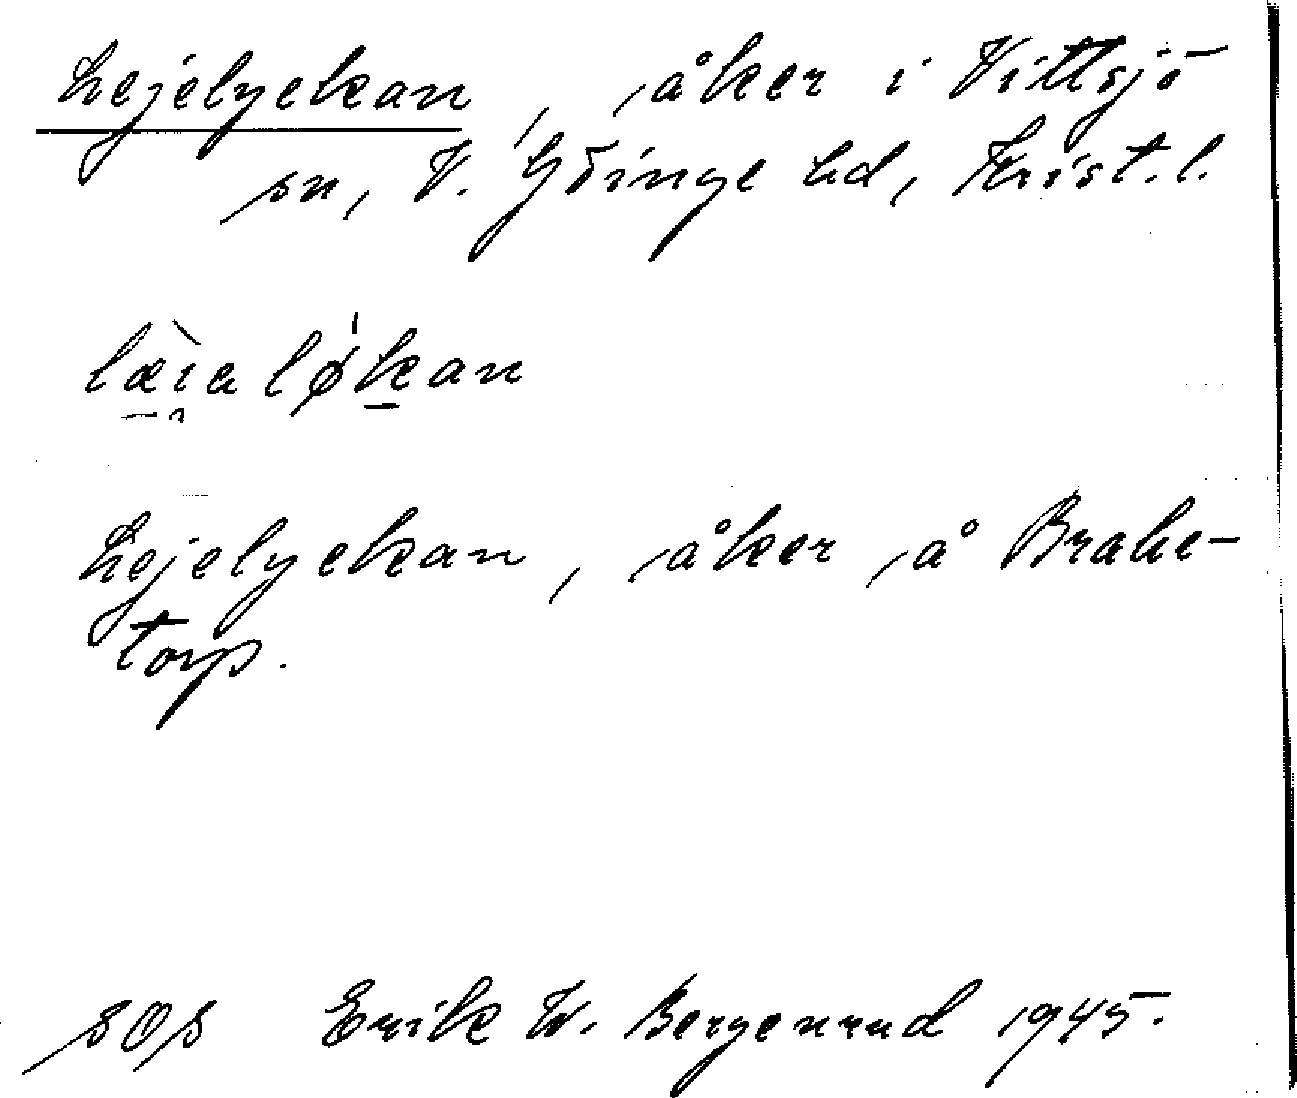 Lejelyckan, åker i Vittsjö
sn, V. Göinge hd, Krist.l.
læ̀ia lø̍kan
Lejelyckan, åker å Brahe-
torp.
sOs Erik W. Bergenrud 1945.